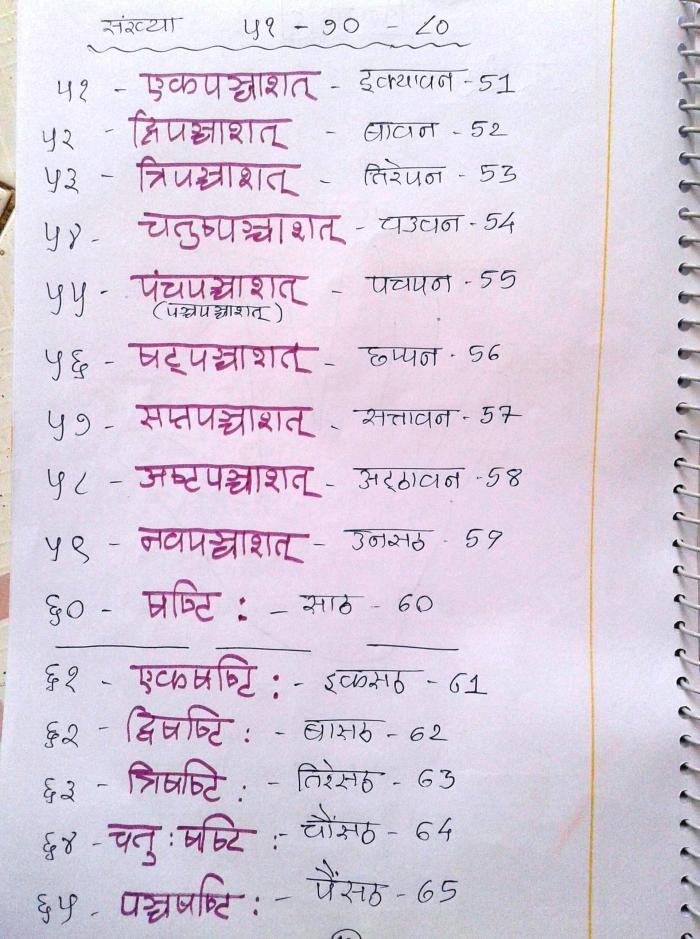 संख्या ५१ - ७० - ८०
५१ - एकपञ्चाशत् - इक्यावन - 51
५२ - द्विपञ्चाशत् - बावन - 52
५३ - त्रिपञ्चाशत् - तिरेपन - 53
५४ - चतुष्पञ्चाशत् - चउवन - 54
५५ - पंचपञ्चाशत् - पचपन - 55
(पञ्चपञ्चाशत्)
५६ - षट्पञ्चाशत् - छप्पन - 56
५७ - सप्तपञ्चाशत् - सत्तावन - 57
५८ - अष्टपञ्चाशत् - अट्ठावन - 58
५९ - नवपञ्चाशत् - उनसठ - 59
६० - षष्टि : - साठ - 60
६१ - एकषष्टि : - इकसठ - 61
६२ - द्विषष्टि : - बासठ - 62
६३ - त्रिषष्टि : - तिरेसठ - 63
६४ - चतु : षष्टि : - चौंसठ - 64
६५ - पञ्चषष्टि : - पैंसठ - 65